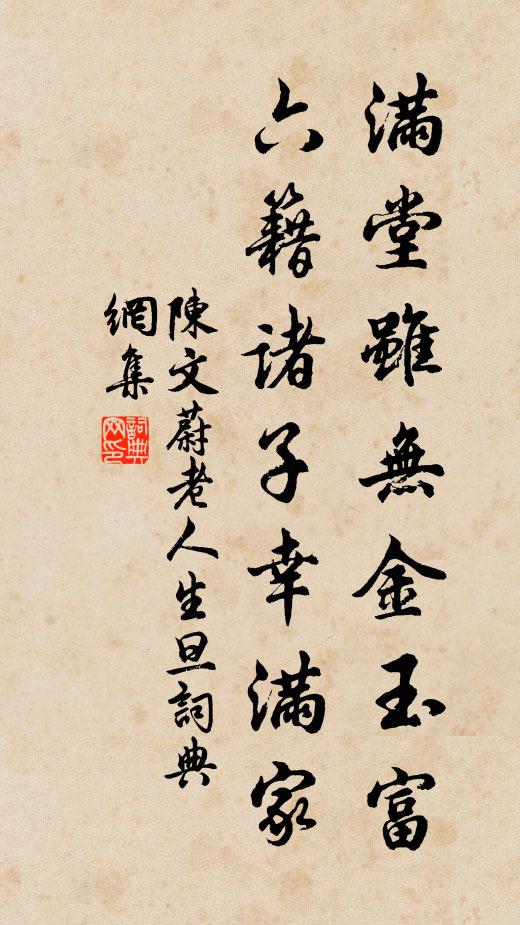 滿堂雖無金玉富
六籍諸子幸滿家
陳文蔚老人生旦詞典
網集
詞典
网印